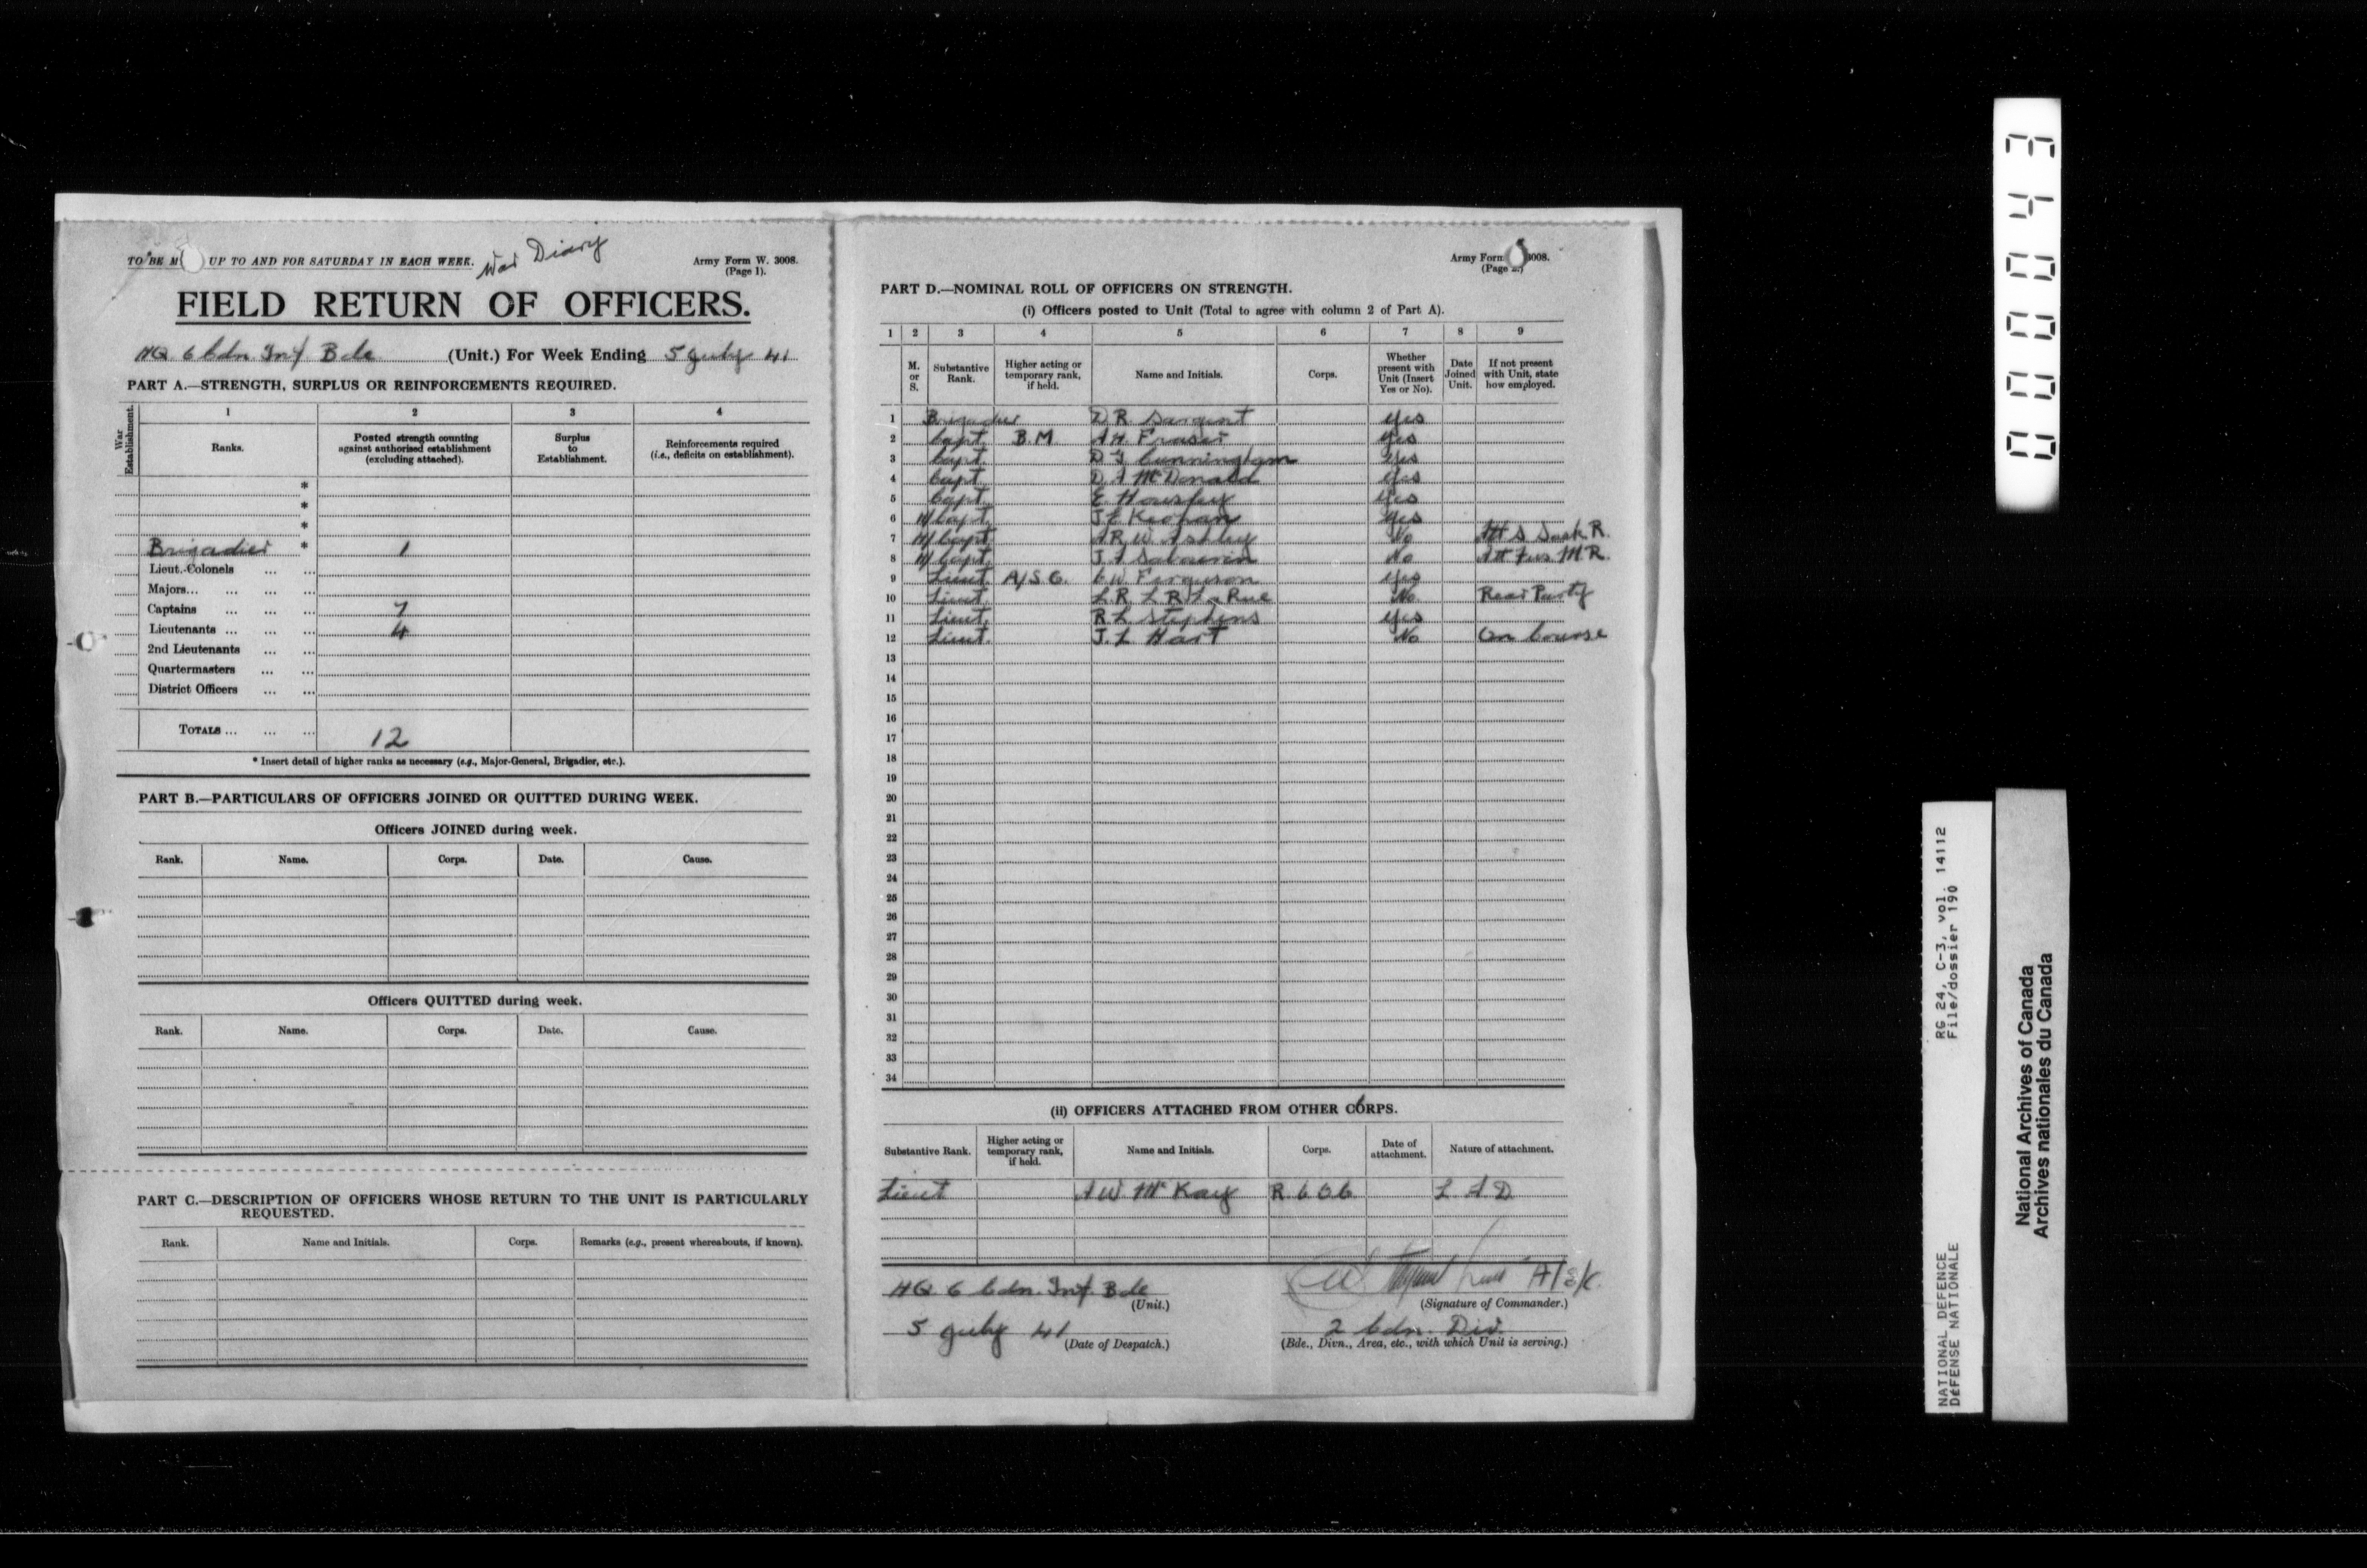 TO BE M UP TO AND FOR SATURDAY IN EACH WEEK.
War Diary
Army Form W. 3008.
(Page 1).
FIELD RETURN OF OFFICERS.
HQ 6 Cdn Inf Bde (Unit.) For Week Ending 5 July 41
PART A.—STRENGTH, SURPLUS OR REINFORCEMENTS REQUIRED.
War Establishment.
1 2 3 4
Ranks. Posted strength counting against authorised establishment (excluding attached). Surplus to Establishment. Reinforcements required (i.e., deficits on establishment).
*
*
*
Brigadier * 1
Lieut.-Colonels ... ...
Majors... ... ... ...
Captains ... ... ... 7
Lieutenants ... ... ... 4
2nd Lieutenants ... ...
Quartermasters ... ...
District Officers ... ...
TOTALS ... ... ... 12
* Insert detail of higher ranks as necessary (e.g., Major-General, Brigadier, etc.).
PART B.—PARTICULARS OF OFFICERS JOINED OR QUITTED DURING WEEK.
Officers JOINED during week.
Rank. Name. Corps. Date. Cause.
Officers QUITTED during week.
Rank. Name. Corps. Date. Cause.
PART C.—DESCRIPTION OF OFFICERS WHOSE RETURN TO THE UNIT IS PARTICULARLY
REQUESTED.
Rank. Name and Initials. Corps. Remarks (e.g., present whereabouts, if known).
Army Form 3008.
(Page 2.)
PART D.—NOMINAL ROLL OF OFFICERS ON STRENGTH.
(i) Officers posted to Unit (Total to agree with column 2 of Part A).
1 2 3 4 5 6 7 8 9
M. or S. Substantive Rank. Higher acting or temporary rank, if held. Name and Initials. Corps. Whether present with Unit (Insert Yes or No). Date Joined Unit. If not present with Unit, state how employed.
1 Brigadier D R Sargent Yes
2 Capt. B.M A H Fraser Yes
3 Capt. D J Cunningham Yes
4 Capt. D A McDonald Yes
5 Capt. E Housley Yes
6 H/Capt. J E Keohan Yes
7 H/Capt. A R W Ashley No Att S Sask R.
8 H/Capt. J A Sabourin No Att Fus M R.
9 Lieut. A/S.C. C W Ferguson Yes
10 Lieut. L R L R LaRue No Rear Party
11 Lieut. R L Stephens Yes
12 Lieut. J. L Hart No On Course
13
14
15
16
17
18
19
20
21
22
23
24
25
26
27
28
29
30
31
32
33
34
(ii) OFFICERS ATTACHED FROM OTHER CORPS.
Substantive Rank. Higher acting or temporary rank, if held. Name and Initials. Corps. Date of attachment. Nature of attachment.
Lieut A W McKay R.C.O.C L A D
HQ 6 Cdn. Inf. Bde
(Unit.)
A/S/C.
(Signature of Commander.)
5 July 41
(Date of Despatch.)
2 Cdn. Div.
(Bde., Divn., Area, etc., with which Unit is serving.)
000043
RG 24, C-3, vol. 14112
File/dossier 190
NATIONAL DEFENCE
DÉFENSE NATIONALE
National Archives of Canada
Archives nationales du Canada